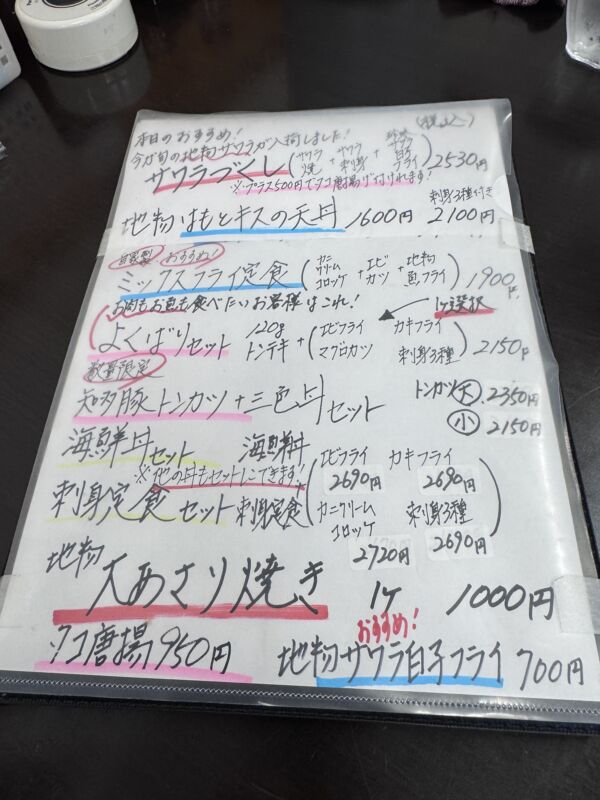 本日のおすすめ! (税込)
今が旬の地物サワラが入荷しました!
サワラづくし(サワラ焼+サワラ刺身+ サワラ白子フライ)2530円
※プラス500円でタコ唐揚げ付けれます!
地物はもとキスの天丼 1600円 刺身3種付き 2100円
自家製 おすすめ!
ミックスフライ定食(カニクリームコロッケ+エビカツ+地物魚フライ)1900円
お肉もお魚も食べたいお客様はこれ! 1ヶ選択
よくばりセット 120gトンテキ+(エビフライ カキフライ マグロカツ 刺身3種)2150円
数量限定
知多豚トンカツ+三色丼セット トンカツ大 2350円
小 2150円
海鮮丼セット 海鮮丼
※他の丼もセットにできます!
刺身定食セット 刺身定食
(エビフライ 2690円 カキフライ 2690円
カニクリームコロッケ 2720円 刺身3種 2690円)
地物
大あさり焼き 1ヶ 1000円
おすすめ!
タコ唐揚 950円 地物サワラ白子フライ 700円